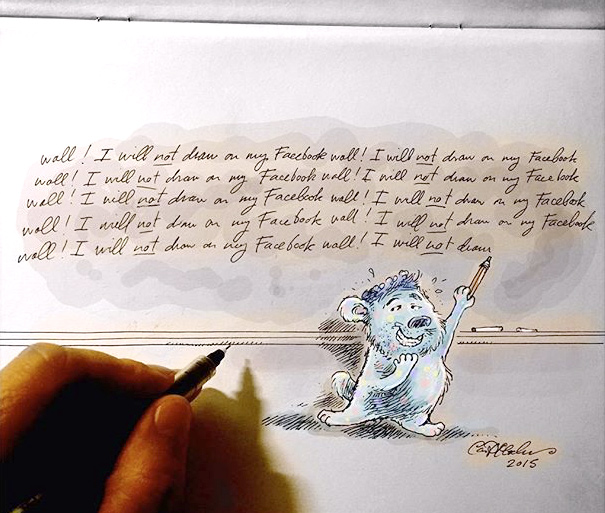 wall! I will not draw on my Facebook wall! I will not draw on my Facebook
wall! I will not draw on my Facebook wall! I will not draw on my Facebook
wall! I will not draw on my Facebook wall! I will not draw on my Facebook
wall! I will not draw on my Facebook wall! I will not draw on my Facebook
wall! I will not draw on my Facebook wall! I will not draw
2015